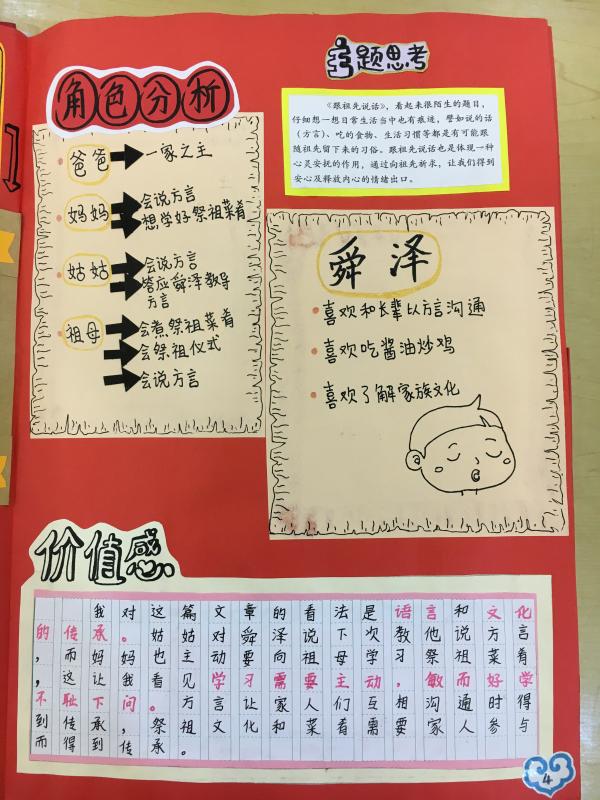 角色分析
爸爸 一家之主
妈妈 会说方言
想学好祭祖菜肴
姑姑 会说方言
答应舜泽教导
方言
祖母 会煮祭祖菜肴
会祭祖仪式
会说方言
题思考
《跟祖先说话》，看起来很陌生的题目，
仔细想一想日常生活当中也有痕迹，譬如说的话
（方言）、吃的食物、生活习惯等都是有可能跟
随祖先留下来的习俗。跟祖先说话也是体现一种
心灵安抚的作用，通过向祖先祈求，让我们得到
安心及释放内心的情绪出口。
舜泽
喜欢和长辈以方言沟通
喜欢吃酱油炒鸡
喜欢了解家族文化
价值感
我对这篇文章的看法是语言和文化
的传承。姑姑对舜泽说下次教他说方言
，而妈妈也主动要向祖母学习祭祖菜肴
，这让我看见学习需要主动，敏而好学
，不耻下问。方言让家人们互相沟通时得
到传承，祭祖文化和菜看需要家人参与
而得到传承。
4